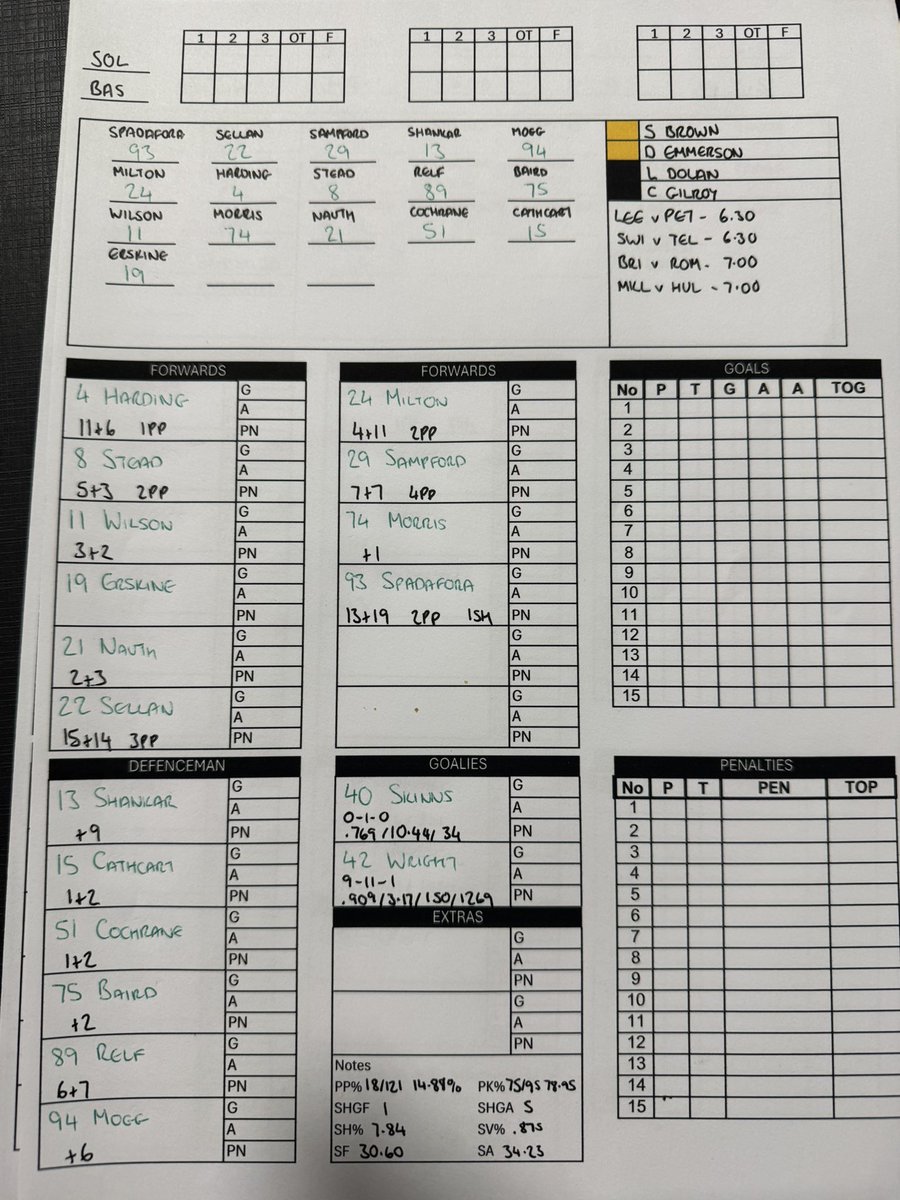 1 2 3 OT F
1 2 3 OT F
1 2 3 OT F
SOL
BAS
SPADAFORA SELLAN SAMPFORD SHANKAR MOGG
93 22 29 13 94
MILTON HARDING STEAD RELF BAIRD
24 4 8 89 75
WILSON MORRIS NAUTH COCHRANE CATHCART
11 74 21 51 15
ERSKINE
19
S BROWN
D EMMERSON
L DOLAN
C GILROY
LEE v PET - 6.30
SWI v TEL - 6.30
BRI v ROM - 7.00
MILL v HUL - 7.00
FORWARDS
4 HARDING G
A
11+6 1PP PN
8 STEAD G
A
5+3 2PP PN
11 WILSON G
A
3+2 PN
19 ERSKINE G
A
PN
21 NAUTH G
A
2+3 PN
22 SELLAN G
A
15+14 3PP PN
FORWARDS
24 MILTON G
A
4+11 2PP PN
29 SAMPFORD G
A
7+7 4PP PN
74 MORRIS G
A
+1 PN
93 SPADAFORA G
A
13+19 2PP 1SH PN
G
A
PN
G
A
PN
GOALS
No P T G A A TOG
1
2
3
4
5
6
7
8
9
10
11
12
13
14
15
DEFENCEMAN
13 SHANKAR G
A
+9 PN
15 CATHCART G
A
1+2 PN
51 COCHRANE G
A
1+2 PN
75 BAIRD G
A
+2 PN
89 RELF G
A
6+7 PN
94 MOGG G
A
+6 PN
GOALIES
40 SKINNS G
0-1-0 A
.769/10.44/34 PN
42 WRIGHT G
9-11-1 A
.909/3.17/150/1269 PN
EXTRAS
G
A
PN
G
A
PN
Notes
PP% 18/121 14.88% PK% 75/95 78.95
SHGF 1 SHGA 5
SH% 7.84 SV% .875
SF 30.60 SA 34.23
PENALTIES
No P T PEN TOP
1
2
3
4
5
6
7
8
9
10
11
12
13
14
15